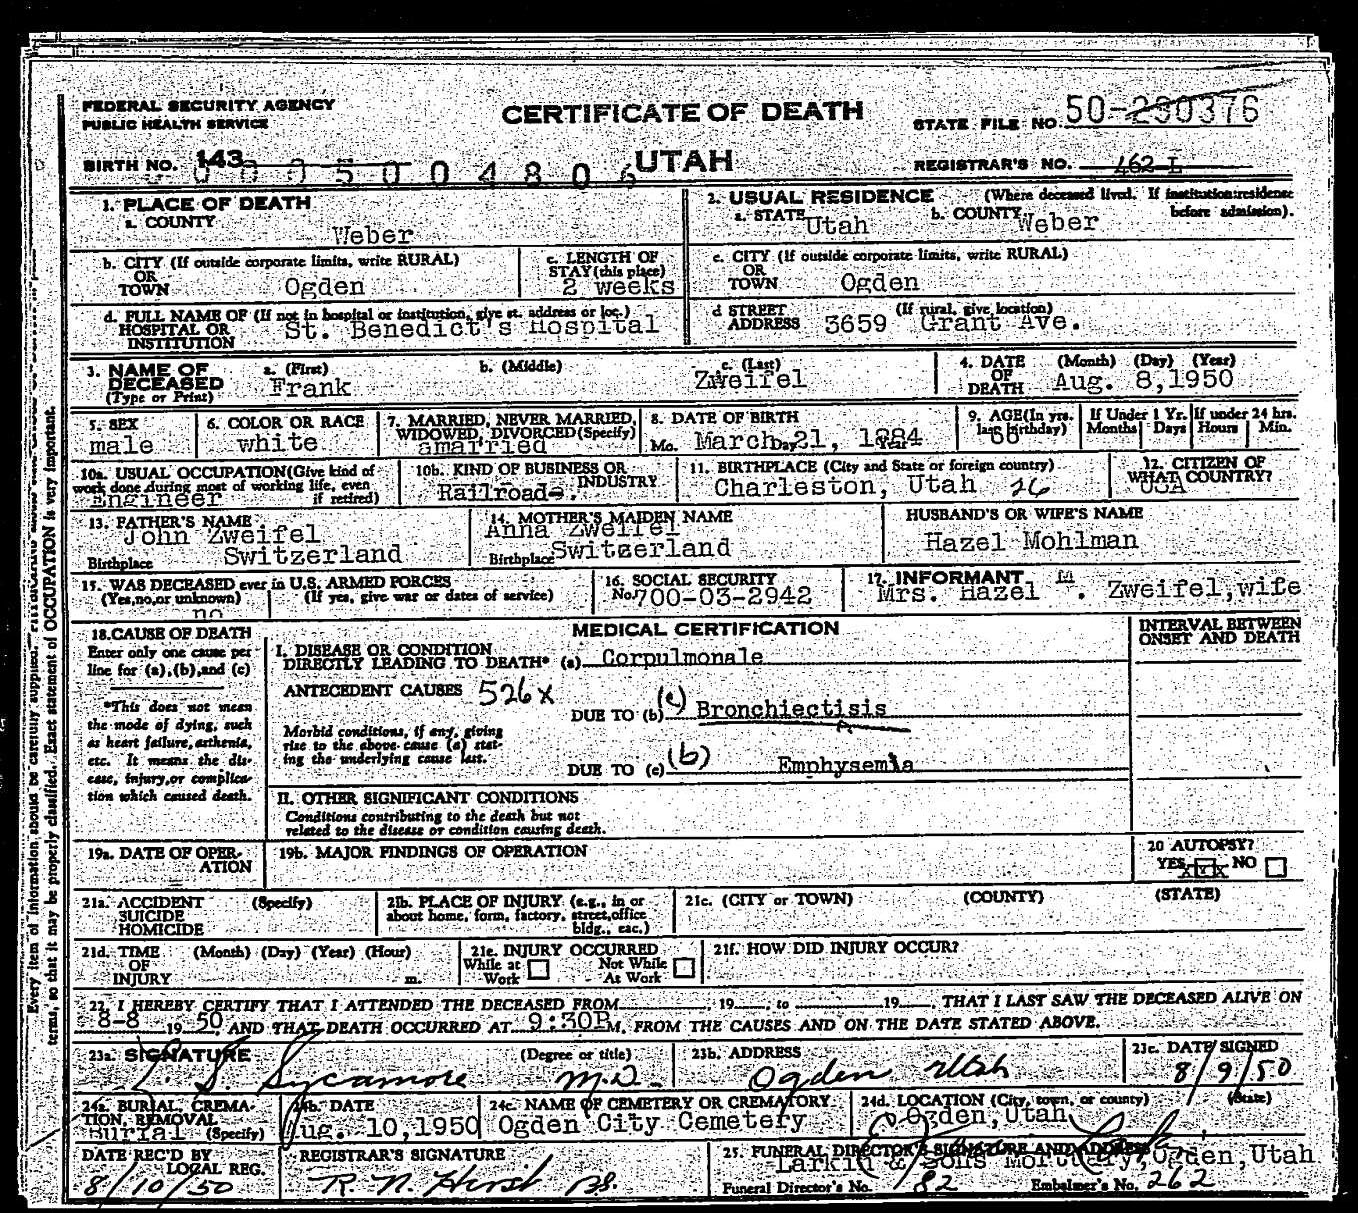 FEDERAL SECURITY AGENCY
PUBLIC HEALTH SERVICE
CERTIFICATE OF DEATH
STATE FILE NO. 50-290376
BIRTH NO. 143
0 0 0 5 0 0 4 8 0 6
UTAH
REGISTRAR'S NO. 462-L
1. PLACE OF DEATH
a. COUNTY
Weber
2. USUAL RESIDENCE (Where deceased lived. If institution:residence before admission).
a. STATE Utah b. COUNTY Weber
b. CITY (If outside corporate limits, write RURAL)
OR
TOWN Ogden
c. LENGTH OF
STAY (this place)
2 weeks
c. CITY (If outside corporate limits, write RURAL)
OR
TOWN Ogden
d. FULL NAME OF (If not in hospital or institution, give st. address or loc.)
HOSPITAL OR
INSTITUTION St. Benedict's Hospital
d STREET (If rural, give location)
ADDRESS 3659 Grant Ave.
3. NAME OF
DECEASED
(Type or Print)
a. (First) Frank
b. (Middle)
c. (Last) Zweifel
4. DATE (Month) (Day) (Year)
OF
DEATH Aug. 8,1950
5. SEX
male
6. COLOR OR RACE
white
7. MARRIED, NEVER MARRIED,
WIDOWED, DIVORCED (Specify)
amarried
8. DATE OF BIRTH
Mo. March Day 21, 1884
9. AGE (In yrs.
last birthday)
66
If Under 1 Yr.
Months Days
If under 24 hrs.
Hours Min.
10a. USUAL OCCUPATION (Give kind of
work done during most of working life, even
if retired)
Engineer
10b. KIND OF BUSINESS OR
INDUSTRY
Railroads.
11. BIRTHPLACE (City and State or foreign country)
Charleston, Utah 26
12. CITIZEN OF
WHAT COUNTRY?
USA
13. FATHER'S NAME
John Zweifel
Birthplace Switzerland
14. MOTHER'S MAIDEN NAME
Anna Zweifel
Birthplace Switzerland
HUSBAND'S OR WIFE'S NAME
Hazel Mohlman
15. WAS DECEASED ever in U.S. ARMED FORCES
(Yes,no,or unknown) (If yes, give war or dates of service)
no
16. SOCIAL SECURITY
No. 700-03-2942
17. INFORMANT
Mrs. Hazel M. Zweifel,wife
18. CAUSE OF DEATH
Enter only one cause per
line for (a),(b),and (c)
*This does not mean
the mode of dying, such
as heart failure, asthenia,
etc. It means the dis-
ease, injury,or complica-
tion which caused death.
MEDICAL CERTIFICATION
INTERVAL BETWEEN
ONSET AND DEATH
I. DISEASE OR CONDITION
DIRECTLY LEADING TO DEATH* (a) Corpulmonale
ANTECEDENT CAUSES 526x
DUE TO (b) (c) Bronchiectisis
Morbid conditions, if any, giving
rise to the above cause (a) stat-
ing the underlying cause last.
DUE TO (c) (b) Emphysemia
II. OTHER SIGNIFICANT CONDITIONS
Conditions contributing to the death but not
related to the disease or condition causing death.
19a. DATE OF OPER-
ATION
19b. MAJOR FINDINGS OF OPERATION
20 AUTOPSY?
YES XXX NO
21a. ACCIDENT (Specify)
SUICIDE
HOMICIDE
21b. PLACE OF INJURY (e.g., in or
about home, form, factory, street,office
bldg., etc.)
21c. (CITY or TOWN) (COUNTY) (STATE)
21d. TIME (Month) (Day) (Year) (Hour)
OF
INJURY m.
21e. INJURY OCCURRED
While at Work Not While At Work
21f. HOW DID INJURY OCCUR?
22. I HEREBY CERTIFY THAT I ATTENDED THE DECEASED FROM 19 , to 19 , THAT I LAST SAW THE DECEASED ALIVE ON
8-8 19 50, AND THAT DEATH OCCURRED AT 9:30P M. FROM THE CAUSES AND ON THE DATE STATED ABOVE.
23a. SIGNATURE (Degree or title)
L. S. Sycamore M.D.
23b. ADDRESS
Ogden Utah
23c. DATE SIGNED
8/9/50
24a. BURIAL, CREMA-
TION, REMOVAL
(Specify)
Burial
24b. DATE
Aug. 10,1950
24c. NAME OF CEMETERY OR CREMATORY
Ogden City Cemetery
24d. LOCATION (City, town, or county) (State)
Ogden,Utah
DATE REC'D BY
LOCAL REG.
8/10/50
REGISTRAR'S SIGNATURE
R. N. Hirst
25. FUNERAL DIRECTOR'S SIGNATURE AND ADDRESS
Larkin & Sons Mortuary,Ogden,Utah
Funeral Director's No. 182 Embalmer's No. 262
Every item of information should be carefully supplied.
terms, so that it may be properly classified. Exact statement of OCCUPATION is very important.